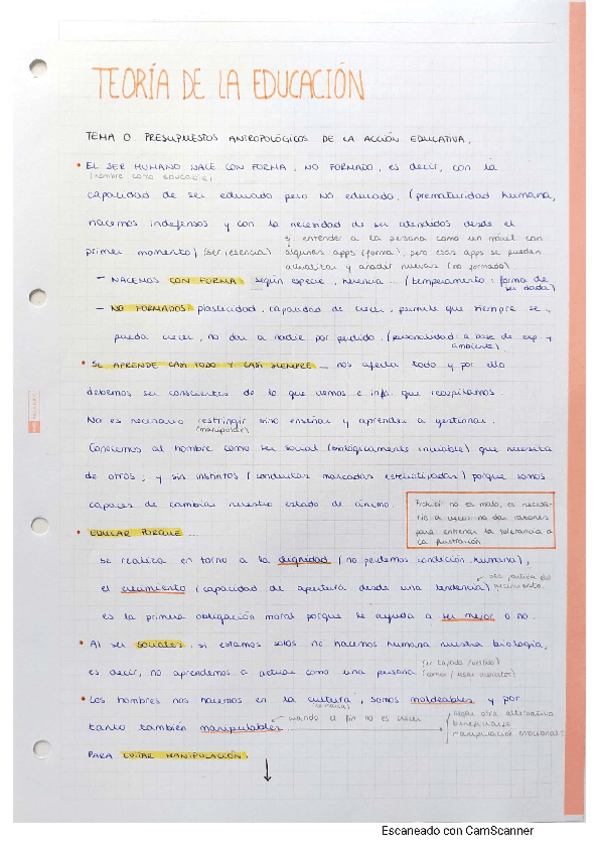 TEORÍA DE LA EDUCACIÓN
TEMA 0. PRESUPUESTOS ANTROPOLÓGICOS DE LA ACCIÓN EDUCATIVA.
• EL SER HUMANO NACE CON FORMA, NO FORMADO, es decir, con la
(hombre como educable)
capacidad de ser educado pero NO educado. (prematuridad humana,
nacemos indefensos y con la necesidad de ser atendidos desde el
primer momento) (ser esencial)
ej. entender a la persona como un móvil con
algunas apps (forma), pero esas apps se pueden
actualizar y añadir nuevas (no formado)
– NACEMOS CON FORMA según especie, herencia ... (temperamento: forma de
ser dada)
– NO FORMADOS plasticidad, capacidad de crecer, permite que siempre se
pueda crecer, no dar a nadie por perdido. (personalidad: a base de exp. y
ambiente)
• SE APRENDE CASI TODO Y CASI SIEMPRE – nos afecta todo y por ello
debemos ser conscientes de lo que vemos e info. que recopilamos.
No es necesario restringir sino enseñar y aprender a gestionar.
(manipular)
Concebimos al hombre como ser social (biológicamente inviable) que necesita
de otros; y sin instintos (conductas marcadas estereotipadas) porque somos
capaces de cambiar nuestro estado de ánimo.
Prohibir no es malo, es necesa-
rio a veces no dar razones
para entrenar la tolerancia a
la frustración
• EDUCAR PORQUE ...
se realiza en torno a la dignidad (no perdemos condición humana),
el crecimiento (capacidad de apertura desde una tendencia)
crecimiento.
es la primera obligación moral porque se ayuda a ser mejor o no.
• Al ser sociales, si estamos solos no hacemos humana nuestra biología,
es decir, no aprendemos a actuar como una persona
(ir tapado/vestido)
(comer/usar cubiertos)
• Los hombres nos hacemos en la cultura, somos moldeables y por
tanto también manipulables
cuando el fin no es crecer
otra alternativa
manipulación emocional
PARA EVITAR MANIPULACIÓN.
Escaneado con CamScanner